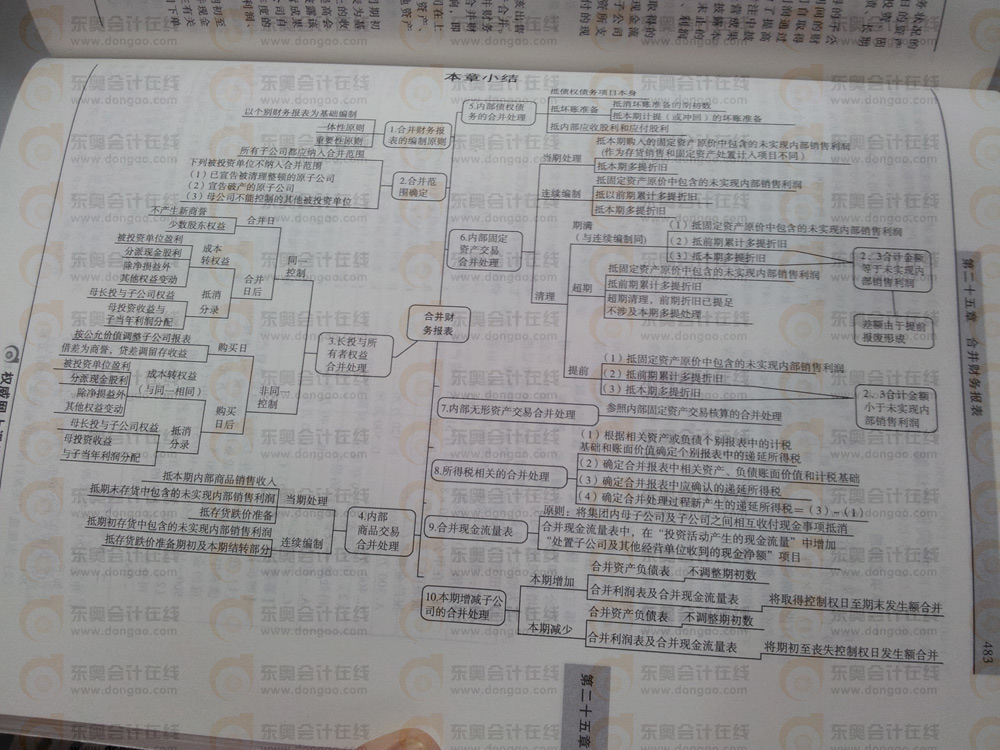 本章小结
合并财
务报表
1.合并财务报
表的编制原则
以个别财务报表为基础编制
一体性原则
重要性原则
2.合并范
围确定
所有子公司都应纳入合并范围
下列被投资单位不纳入合并范围
(1)已宣告被清理整顿的原子公司
(2)宣告破产的原子公司
(3)母公司不能控制的其他被投资单位
3.长投与所
有者权益
合并处理
同一
控制
合并日
不产生新商誉
少数股东权益
合并
日后
成本
转权益
被投资单位盈利
分派现金股利
除净损益外
其他权益变动
抵消
分录
母长投与子公司权益
母投资收益与
子当年利润分配
非同一
控制
购买日
按公允价值调整子公司报表
借差为商誉,贷差调留存收益
购买
日后
成本转权益
(与同一相同)
被投资单位盈利
分派现金股利
除净损益外
其他权益变动
抵消
分录
母长投与子公司权益
母投资收益
与子当年利润分配
4.内部
商品交易
合并处理
当期处理
抵本期内部商品销售收入
抵期末存货中包含的未实现内部销售利润
抵存货跌价准备
连续编制
抵期初存货中包含的未实现内部销售利润
抵存货跌价准备期初及本期结转部分
5.内部债权债
务的合并处理
抵债权债务项目本身
抵坏账准备
抵消坏账准备的期初数
抵本期计提(或冲回)的坏账准备
抵内部应收股利和应付股利
6.内部固定
资产交易
合并处理
当期处理
抵本期购入的固定资产原价中包含的未实现内部销售利润
(作为存货销售和固定资产处置计入项目不同)
抵本期多提折旧
连续编制
抵固定资产原价中包含的未实现内部销售利润
抵以前期累计多提折旧
抵本期多提折旧
清理
期满
(与连续编制同)
(1)抵固定资产原价中包含的未实现内部销售利润
(2)抵前期累计多提折旧
(3)抵本期多提折旧
2、3合计金额
等于未实现内
部销售利润
超期
抵固定资产原价中包含的未实现内部销售利润
抵前期累计多提折旧
超期清理,前期折旧已提足
不涉及本期多提处理
差额由于提前
报废形成
提前
(1)抵固定资产原价中包含的未实现内部销售利润
(2)抵前期累计多提折旧
(3)抵本期多提折旧
2、3合计金额
小于未实现内
部销售利润
7.内部无形资产交易合并处理
参照内部固定资产交易核算的合并处理
8.所得税相关的合并处理
(1)根据相关资产或负债个别报表中的计税
基础和账面价值确定个别报表中的递延所得税
(2)确定合并报表中相关资产、负债账面价值和计税基础
(3)确定合并报表中应确认的递延所得税
(4)确定合并处理过程新产生的递延所得税=(3)-(1)
9.合并现金流量表
原则:将集团内母子公司及子公司之间相互收付现金事项抵消
合并现金流量表中,在“投资活动产生的现金流量”中增加
“处置子公司及其他经营单位收到的现金净额”项目
10.本期增减子公
司的合并处理
本期增加
合并资产负债表
不调整期初数
合并利润表及合并现金流量表
将取得控制权日至期末发生额合并
本期减少
合并资产负债表
不调整期初数
合并利润表及合并现金流量表
将期初至丧失控制权日发生额合并
第二十五章 合并财务报表
483
第二十五章
东奥会计在线
www.dongao.com